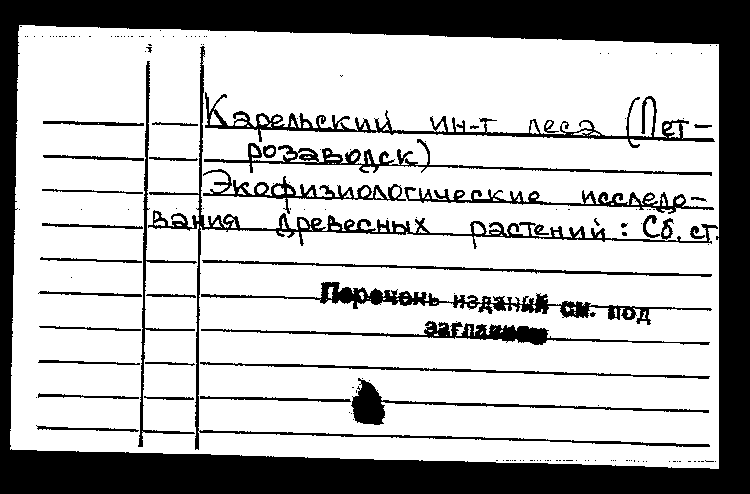 Карельский ин-т леса (Пет-
розаводск)
Экофизиологические исследо-
вания древесных растений : Сб. ст.
Перечень изданий см. под
заглавием